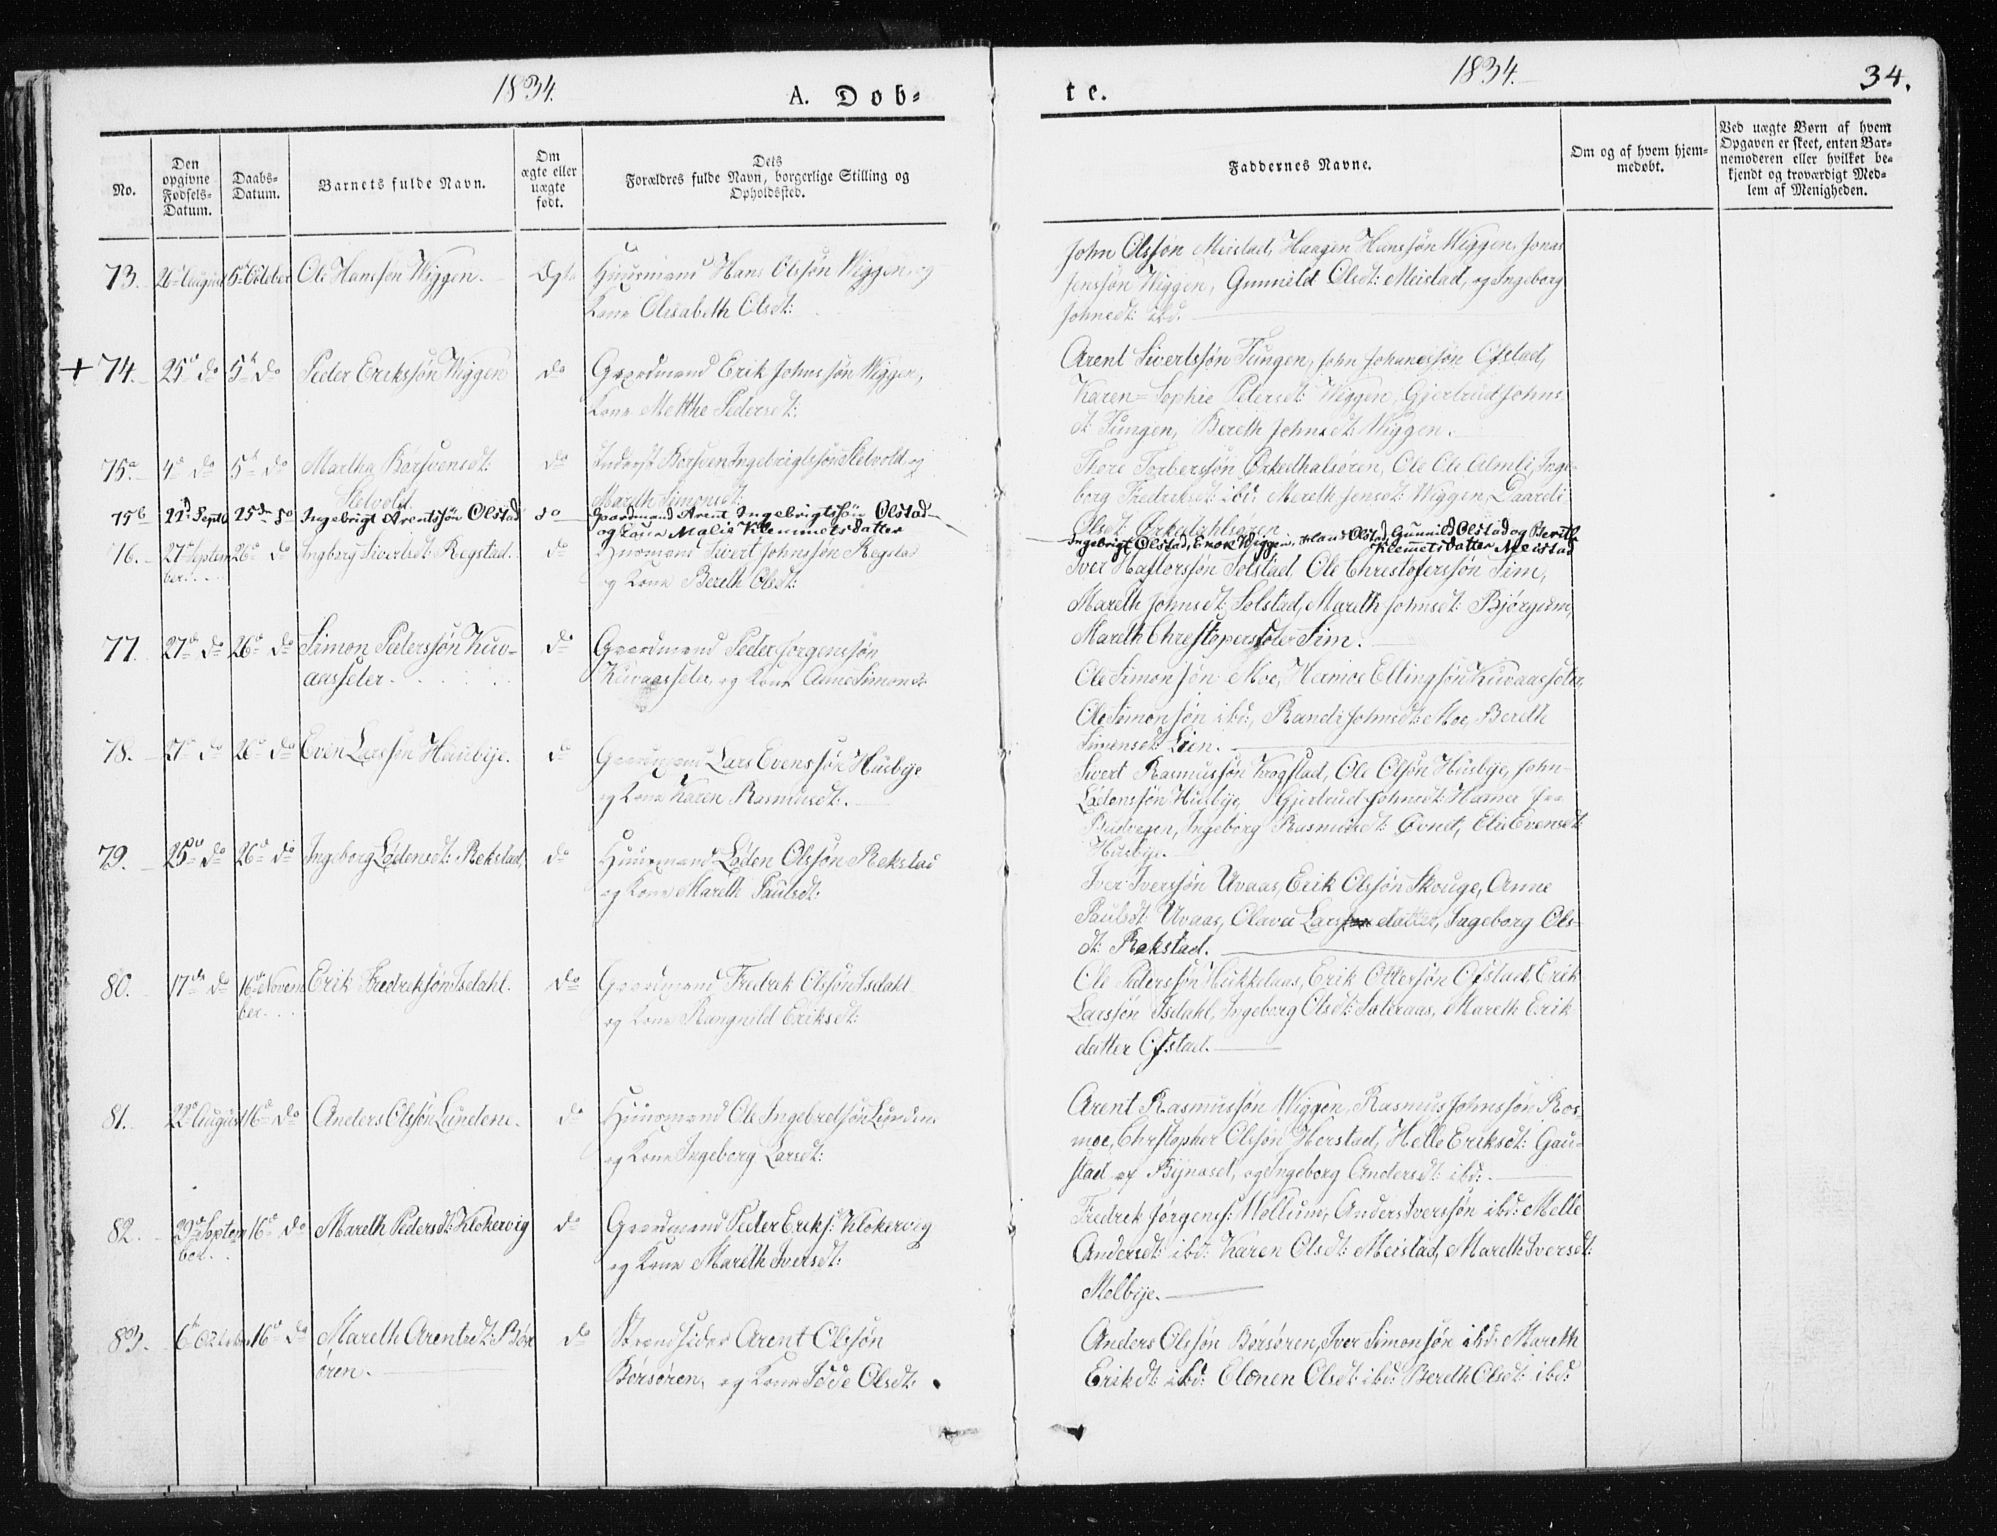 1834.
A. Døb-
te.
1834.
34.
No.
Den opgivne Fødsels-Datum.
Daabs-Datum.
Barnets fulde Navn.
Om ægte eller uægte født.
Dets
Forældres fulde Navn, borgerlige Stilling og
Opholdssted.
Faddernes Navne.
Om og af hvem hjem-
medøbt.
Ved uægte Børn af hvem
Opgaven er skeet, enten Bar-
nemoderen eller hvilket be-
kjendt og troværdigt Med-
lem af Menigheden.
73. 26 August 5 October Ole Hanssøn Wiggen. Ægte Huusmand Hans Olssøn Wiggen, og
Kone Elisabeth Olsdt:
John Olssøn Meistad, Haagen Hanssøn Wiggen, Jonas
Jenssøn Wiggen, Gunnild Olsdt: Meistad, og Ingeborg
Johnsdt: ibd.
+ 74. 25d do 5t do Peder Erikssøn Wiggen do Gaardmand Erik Johnssøn Wiggen,
Kone Metthe Pedersdt:
Arent Sivertssøn Tungen, John Johanessøn Ofstad,
Karen-Sophie Petersdt: Wiggen, Gjertrud Johns
dt: Tungen, Bereth Johnsdt: Wiggen.
75a 4d do 5t do Martha Børsvensdt: do Inderst Børsven Ingebrigtssøn Sletvold, og
Sletvold
Mareth Simonsdt:
Thore Torberssøn Ørkedhalsøren, Ole Ole Almli, Inge-
borg Fredriksdt: ibd: Mereth Jensdt: Wiggen, Daardi
Olsdt: Ørkedahlsøren
75b 21d Septb 25de do Ingebrigt Arentssøn Olstad do Gaardmand Arent Ingebrigtssøn Olstad
og Kone Malie Klemmetsdatter
Ingebrigt Olstad, Enok Wiggen, Olstad, Gunnild Olstad og Berith
Klemmetsdatter Meistad
76. 27d Septem 26d do Ingborg Siverdsdt: Regstad. do Huusmand Sivert Johnssøn Regstad
ber.
og Kone Bereth Olsdt:
Iver Haftorssøn Solstad, Ole Christofersson Sim,
Mareth Johnsdt: Solstad, Mareth Johnsdt: Bjørgum,
Mareth Christopersdoter Sim.
77. 27de do 26d do Simon Pederssøn Kuv- do Gaardmand Peder Jørgenssøn
aasseter.
Kuvaasseter, og Kone Anne Simonsdt
Ole Simonssøn Moe, Hermoe Ellingssøn Kuvaasseter,
Ole Simonssøn ibd:, Randi Johnsdt: Moe, Bereth
Simensdt: Lien.
78. do 26d do Even Larssøn Huusbye. do Gaardmand Lars Evenssøn Husbye
og Kone Karen Rasmusdt.
Sivert Rasmussøn Krogstad, Ole Olsøn Husbye, John
Lødenssøn Husbye, Gjertrud Johnsdt: Hamer
Buvegen, Ingeborg Rasmusdt: Øvnet, Eli Evensdt
Husbye.
79. 25de do 26d do Ingeborg Lødensdt: Rekstad, do Huusmand Løden Olssøn Rekstad
og Kone Mareth Paulsdt:
Iver Iverssøn Uvaas, Erik Olssøn Skouge, Anne
Paulsdt: Uvaas, Olava Lars datter, Ingeborg Ols-
dt: Rekstad.
80. 17de do 16d Novem Erik Fredrikssøn Isdahl. do Gaardmand Fredrik Olssøn Isdahl
ber.
og Kone Rangnild Eriksdt:
Ole Pederssøn Hukkelaas, Erik Ottersøn Ofstad, Erik
Larssøn Isdahl, Ingeborg Olsdt: Sateraas, Mareth Erik
datter Ofstad.
81. 22d August 16d do Anders Olssøn Lundene. do Huusmand Ole Ingebretsøn Lunden
og Kone Ingeborg Larsdt:
Arent Rasmussøn Wiggen, Rasmus Johnssøn Ros-
moe, Christopher Olssøn Herstad, Helle Eriksdt: Gau-
stad af Bynæset, og Ingeborg Andersdt: ibd:
82. 29d Septem 16d do Mareth Pedersdt: Klokervig do Gaardmand Peder Eriks: Klokervig
ber.
og Kone Mareth Iversdt:
Fredrek Jørgens: Mollum, Anders Iverssøn ibd: Melle
Andersdt: ibd: Karen Olsdt: Meistad, Mareth Iversdt:
Melbye.
83. 6t October 16d do Mareth Arentsdt: Børs do Strandsidder Arent Olssøn
øren.
Børsøren, og Kone Olsdt:
Anders Olssøn Børsøren, Iver Simonssøn ibd: Mareth
Eriksdt: ibd: Olsdt: ibd: Bereth Olsdt: ibd: